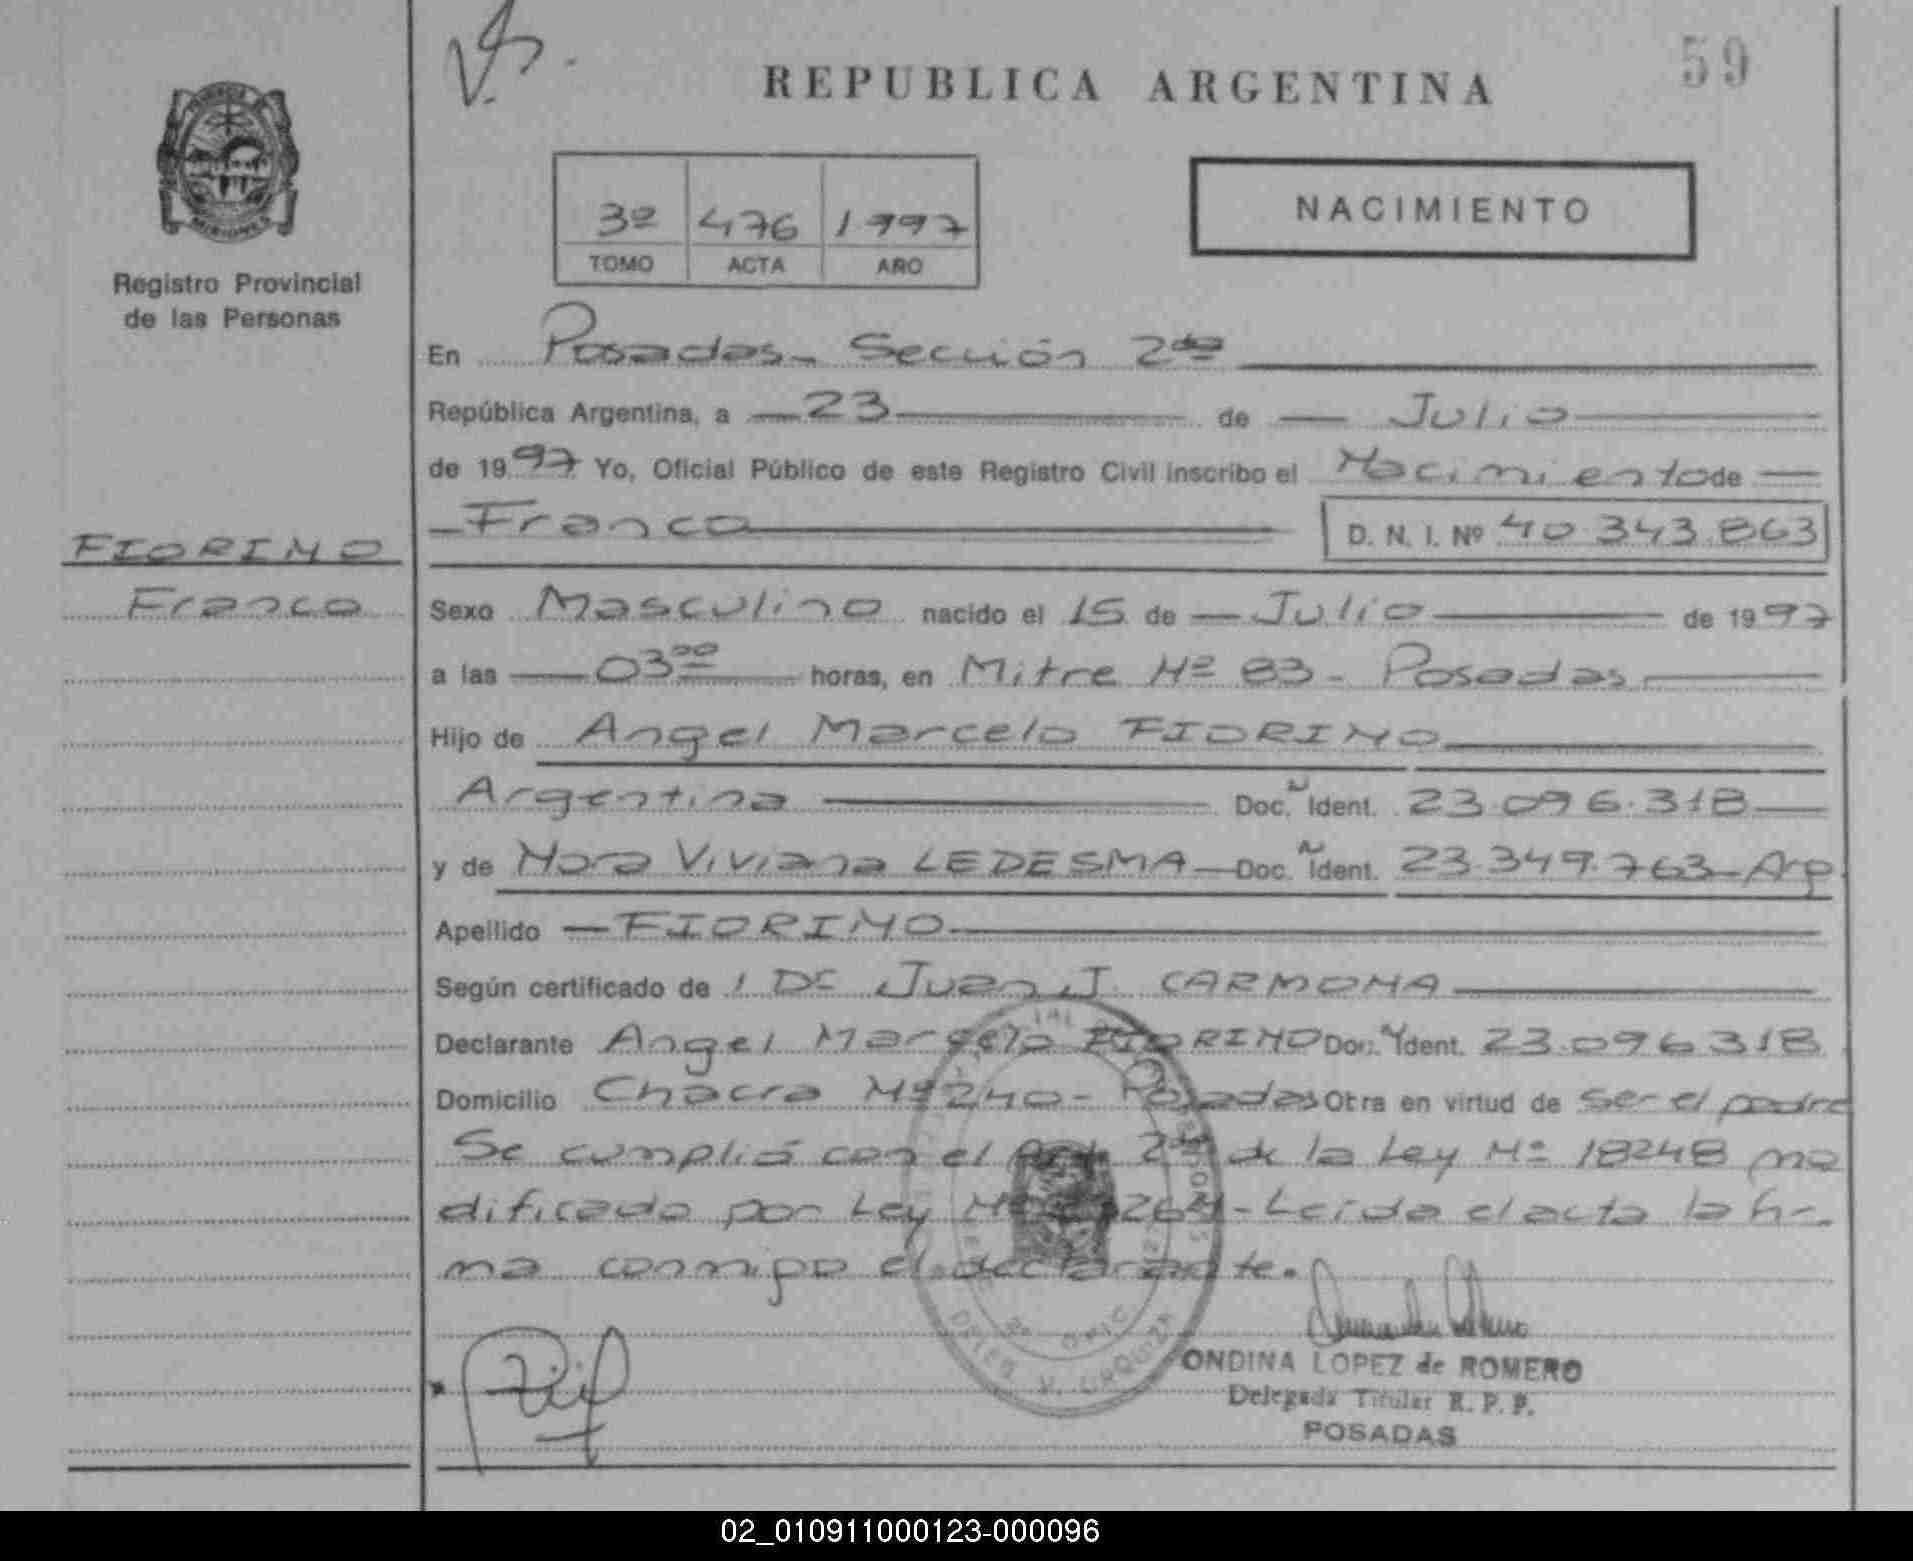 59
REPUBLICA ARGENTINA
3º 476 1997
TOMO ACTA AÑO
NACIMIENTO
Registro Provincial
de las Personas
En Posadas - Sección 2da
República Argentina, a 23 de Julio
de 1997 Yo, Oficial Público de este Registro Civil inscribo el Nacimiento de
Franco D. N. I. Nº 40.343.863
FIORINO
Franco
Sexo Masculino nacido el 15 de Julio de 1997
a las 03 00 horas, en Mitre Nº 83 - Posadas
Hijo de Angel Marcelo FIORINO
Argentina Doc. Ident. 23.096.318
y de Nora Viviana LEDESMA - Doc. Ident. 23.349.763 - Arg
Apellido FIORINO
Según certificado de Dr Juan J. CARMONA
Declarante Angel Marcelo FIORINO Doc. Ident. 23.096318
Domicilio Chacra Nº 240 - Posadas Obra en virtud de ser el padre
Se cumplió con el Art. 2do de la Ley Nº 18248 mo
dificado por Ley Nº - Leida el acta la fir-
ma conmigo el declarante.
ONDINA LOPEZ de ROMERO
Delegada Titular R. P. P.
POSADAS
02_010911000123-000096